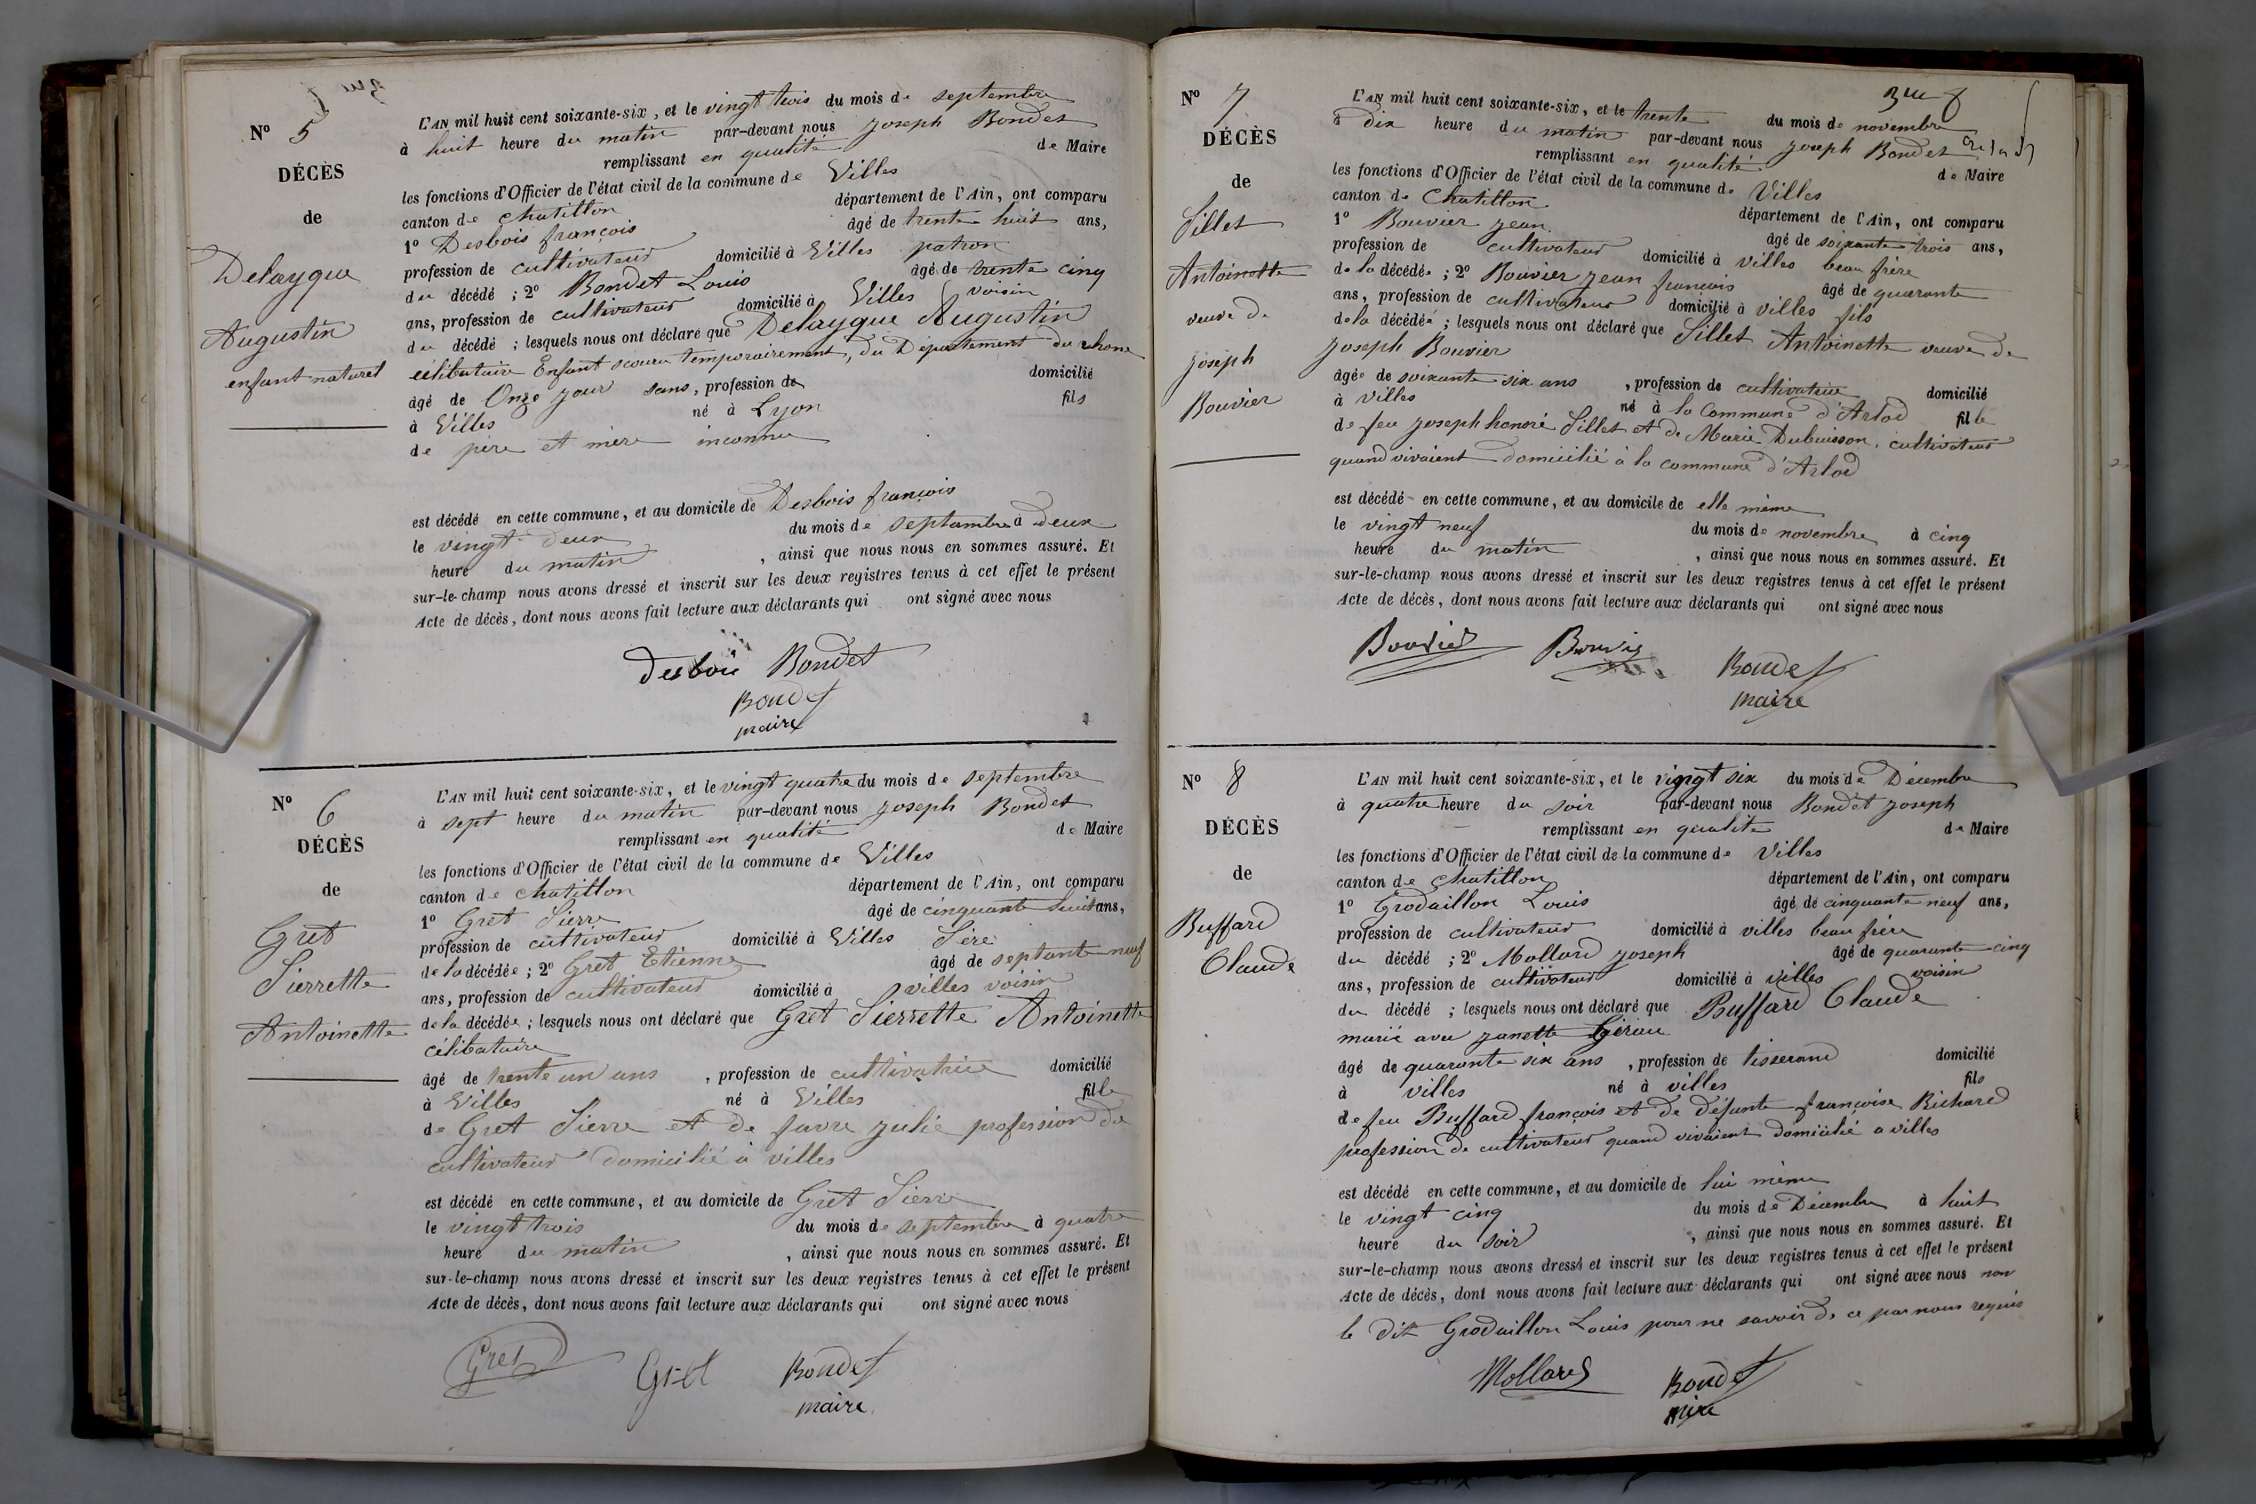 N° 5
DÉCÈS
de
Delaygue
Augustin
enfant naturel
L'AN mil huit cent soixante-six, et le vingt trois du mois de septembre
à huit heure du matin par-devant nous Joseph Bondet
remplissant en qualité de Maire
les fonctions d'Officier de l'état civil de la commune de Villes
canton de Chatillon département de l'Ain, ont comparu
1° Desbois françois âgé de trente huit ans,
profession de cultivateur domicilié à Villes patron
du décédé ; 2° Bondet Louis âgé de trente cinq
ans, profession de cultivateur domicilié à Villes voisin
du décédé ; lesquels nous ont déclaré que Delaygue Augustin
célibataire Enfant secouru temporairement, du Département du rhone
âgé de Onze jour sans, profession de domicilié
à Villes né à Lyon fils
de père et mère inconnu
est décédé en cette commune, et au domicile de Desbois françois
le vingt deux du mois de septembre à deux
heure du matin, ainsi que nous nous en sommes assuré. Et
sur-le-champ nous avons dressé et inscrit sur les deux registres tenus à cet effet le présent
Acte de décès, dont nous avons fait lecture aux déclarants qui ont signé avec nous
Desbois Bondet
Bondet
maire
N° 6
DÉCÈS
de
Gret
Pierrette
Antoinette
L'AN mil huit cent soixante-six, et le vingt quatre du mois de septembre
à sept heure du matin par-devant nous Joseph Bondet
remplissant en qualité de Maire
les fonctions d'Officier de l'état civil de la commune de Villes
canton de Chatillon département de l'Ain, ont comparu
1° Gret Pierre âgé de cinquante huit ans,
profession de cultivateur domicilié à Villes Père
de la décédée ; 2° Gret Etienne âgé de septante neuf
ans, profession de cultivateur domicilié à villes voisin
de la décédée ; lesquels nous ont déclaré que Gret Pierrette Antoinette
célibataire
âgé de trente un ans, profession de cultivatrice domicilié
à Villes né à Villes fille
de Gret Pierre et de favre julie profession de
cultivateur domicilié à villes
est décédé en cette commune, et au domicile de Gret Pierre
le vingt trois du mois de septembre à quatre
heure du matin, ainsi que nous nous en sommes assuré. Et
sur-le-champ nous avons dressé et inscrit sur les deux registres tenus à cet effet le présent
Acte de décès, dont nous avons fait lecture aux déclarants qui ont signé avec nous
Gret Gret Bondet
maire
N° 7
DÉCÈS
de
Pillet
Antoinette
veuve de
Joseph
Bouvier
L'AN mil huit cent soixante-six, et le trente du mois de novembre
à dix heure du matin par-devant nous Joseph Bondet
remplissant en qualité de Maire
les fonctions d'Officier de l'état civil de la commune de Villes
canton de Chatillon département de l'Ain, ont comparu
1° Bouvier jean âgé de soixante trois ans,
profession de cultivateur domicilié à villes beau frère
de la décédée ; 2° Bouvier jean françois âgé de quarante
ans, profession de cultivateur domicilié à villes fils
de la décédée ; lesquels nous ont déclaré que Pillet Antoinette veuve de
Joseph Bouvier
âgée de soixante six ans, profession de cultivatrice domicilié
à villes né à la Commune d'Arlod fille
de feu joseph honoré Pillet et de Marie Dubuisson, cultivateur
quand vivaient domicilié à la commune d'Arlod
est décédé en cette commune, et au domicile de elle même
le vingt neuf du mois de novembre à cinq
heure du matin, ainsi que nous nous en sommes assuré. Et
sur-le-champ nous avons dressé et inscrit sur les deux registres tenus à cet effet le présent
Acte de décès, dont nous avons fait lecture aux déclarants qui ont signé avec nous
Bouvier Bouvier Bondet
maire
N° 8
DÉCÈS
de
Buffard
Claude
L'AN mil huit cent soixante-six, et le vingt six du mois de Décembre
à quatre heure du soir par-devant nous Bondet Joseph
remplissant en qualité de Maire
les fonctions d'Officier de l'état civil de la commune de Villes
canton de Chatillon département de l'Ain, ont comparu
1° Grodaillon Louis âgé de cinquante neuf ans,
profession de cultivateur domicilié à villes beau frère
du décédé ; 2° Mollard joseph âgé de quarante cinq
ans, profession de cultivateur domicilié à villes voisin
du décédé ; lesquels nous ont déclaré que Buffard Claude
marié avec janette
âgé de quarante six ans, profession de tisserand domicilié
à villes né à villes fils
de feu Buffard françois et de défunte françoise Richard
profession de cultivateur quand vivaient domicilié a villes
est décédé en cette commune, et au domicile de lui même
le vingt cinq du mois de Décembre à huit
heure du soir, ainsi que nous nous en sommes assuré. Et
sur-le-champ nous avons dressé et inscrit sur les deux registres tenus à cet effet le présent
Acte de décès, dont nous avons fait lecture aux déclarants qui ont signé avec nous non
le dit Grodaillon Louis pour ne savoir de ce par nous requis
Mollard Bondet
mire